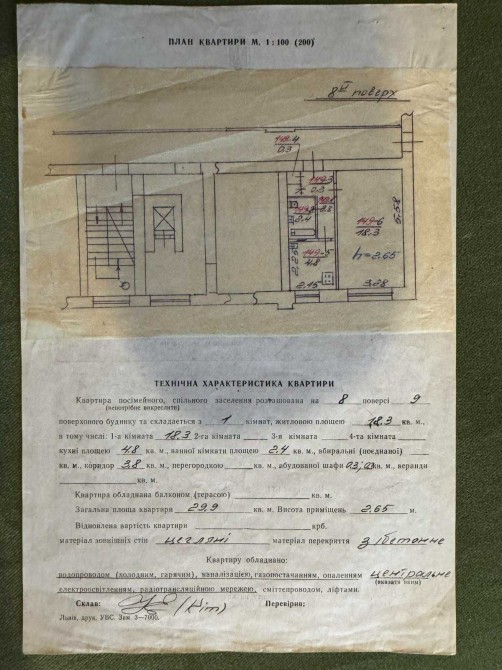 ПЛАН КВАРТИРИ М. 1 : 100 (200)
8й поверх
149-4
0.3
149-3
0.3
2.4
149-6
18.3
5.58
149-5
4.8
2.26
h=2.65
2.15
3.28
ТЕХНІЧНА ХАРАКТЕРИСТИКА КВАРТИРИ
Квартира посімейного, спільного заселення розташована на 8 поверсі 9
(непотрібне викреслити)
поверхового будинку та складається з 1 кімнат, житловою площею 18.3 кв. м.,
в тому числі: 1-а кімната 18.3 2-га кімната 3-я кімната 4-та кімната
кухні площею 4.8 кв. м., ванної кімнати площею 2.4 кв. м., вбиральні (поєднаної)
кв. м., коридор 3.8 кв. м., перегородкою кв. м., вбудованої шафи 0.3; 0.3 кв. м., веранди
кв. м.
Квартира обладнана балконом (терасою) кв. м.
Загальна площа квартири 29.9 кв. м. Висота приміщень 2.65 м.
Відновлена вартість квартири крб.
матеріал зовнішніх стін цегляні матеріал перекриття з/бетонне
Квартиру обладнано:
водопроводом (холодним, гарячим), каналізацією, газопостачанням, опаленням центральне
(вказати яким)
електроосвітленям, радіотрансляційною мережею, сміттєпроводом, ліфтами.
Склав: Перевірив:
Львів, друк. УВС. Зам 3—7000.